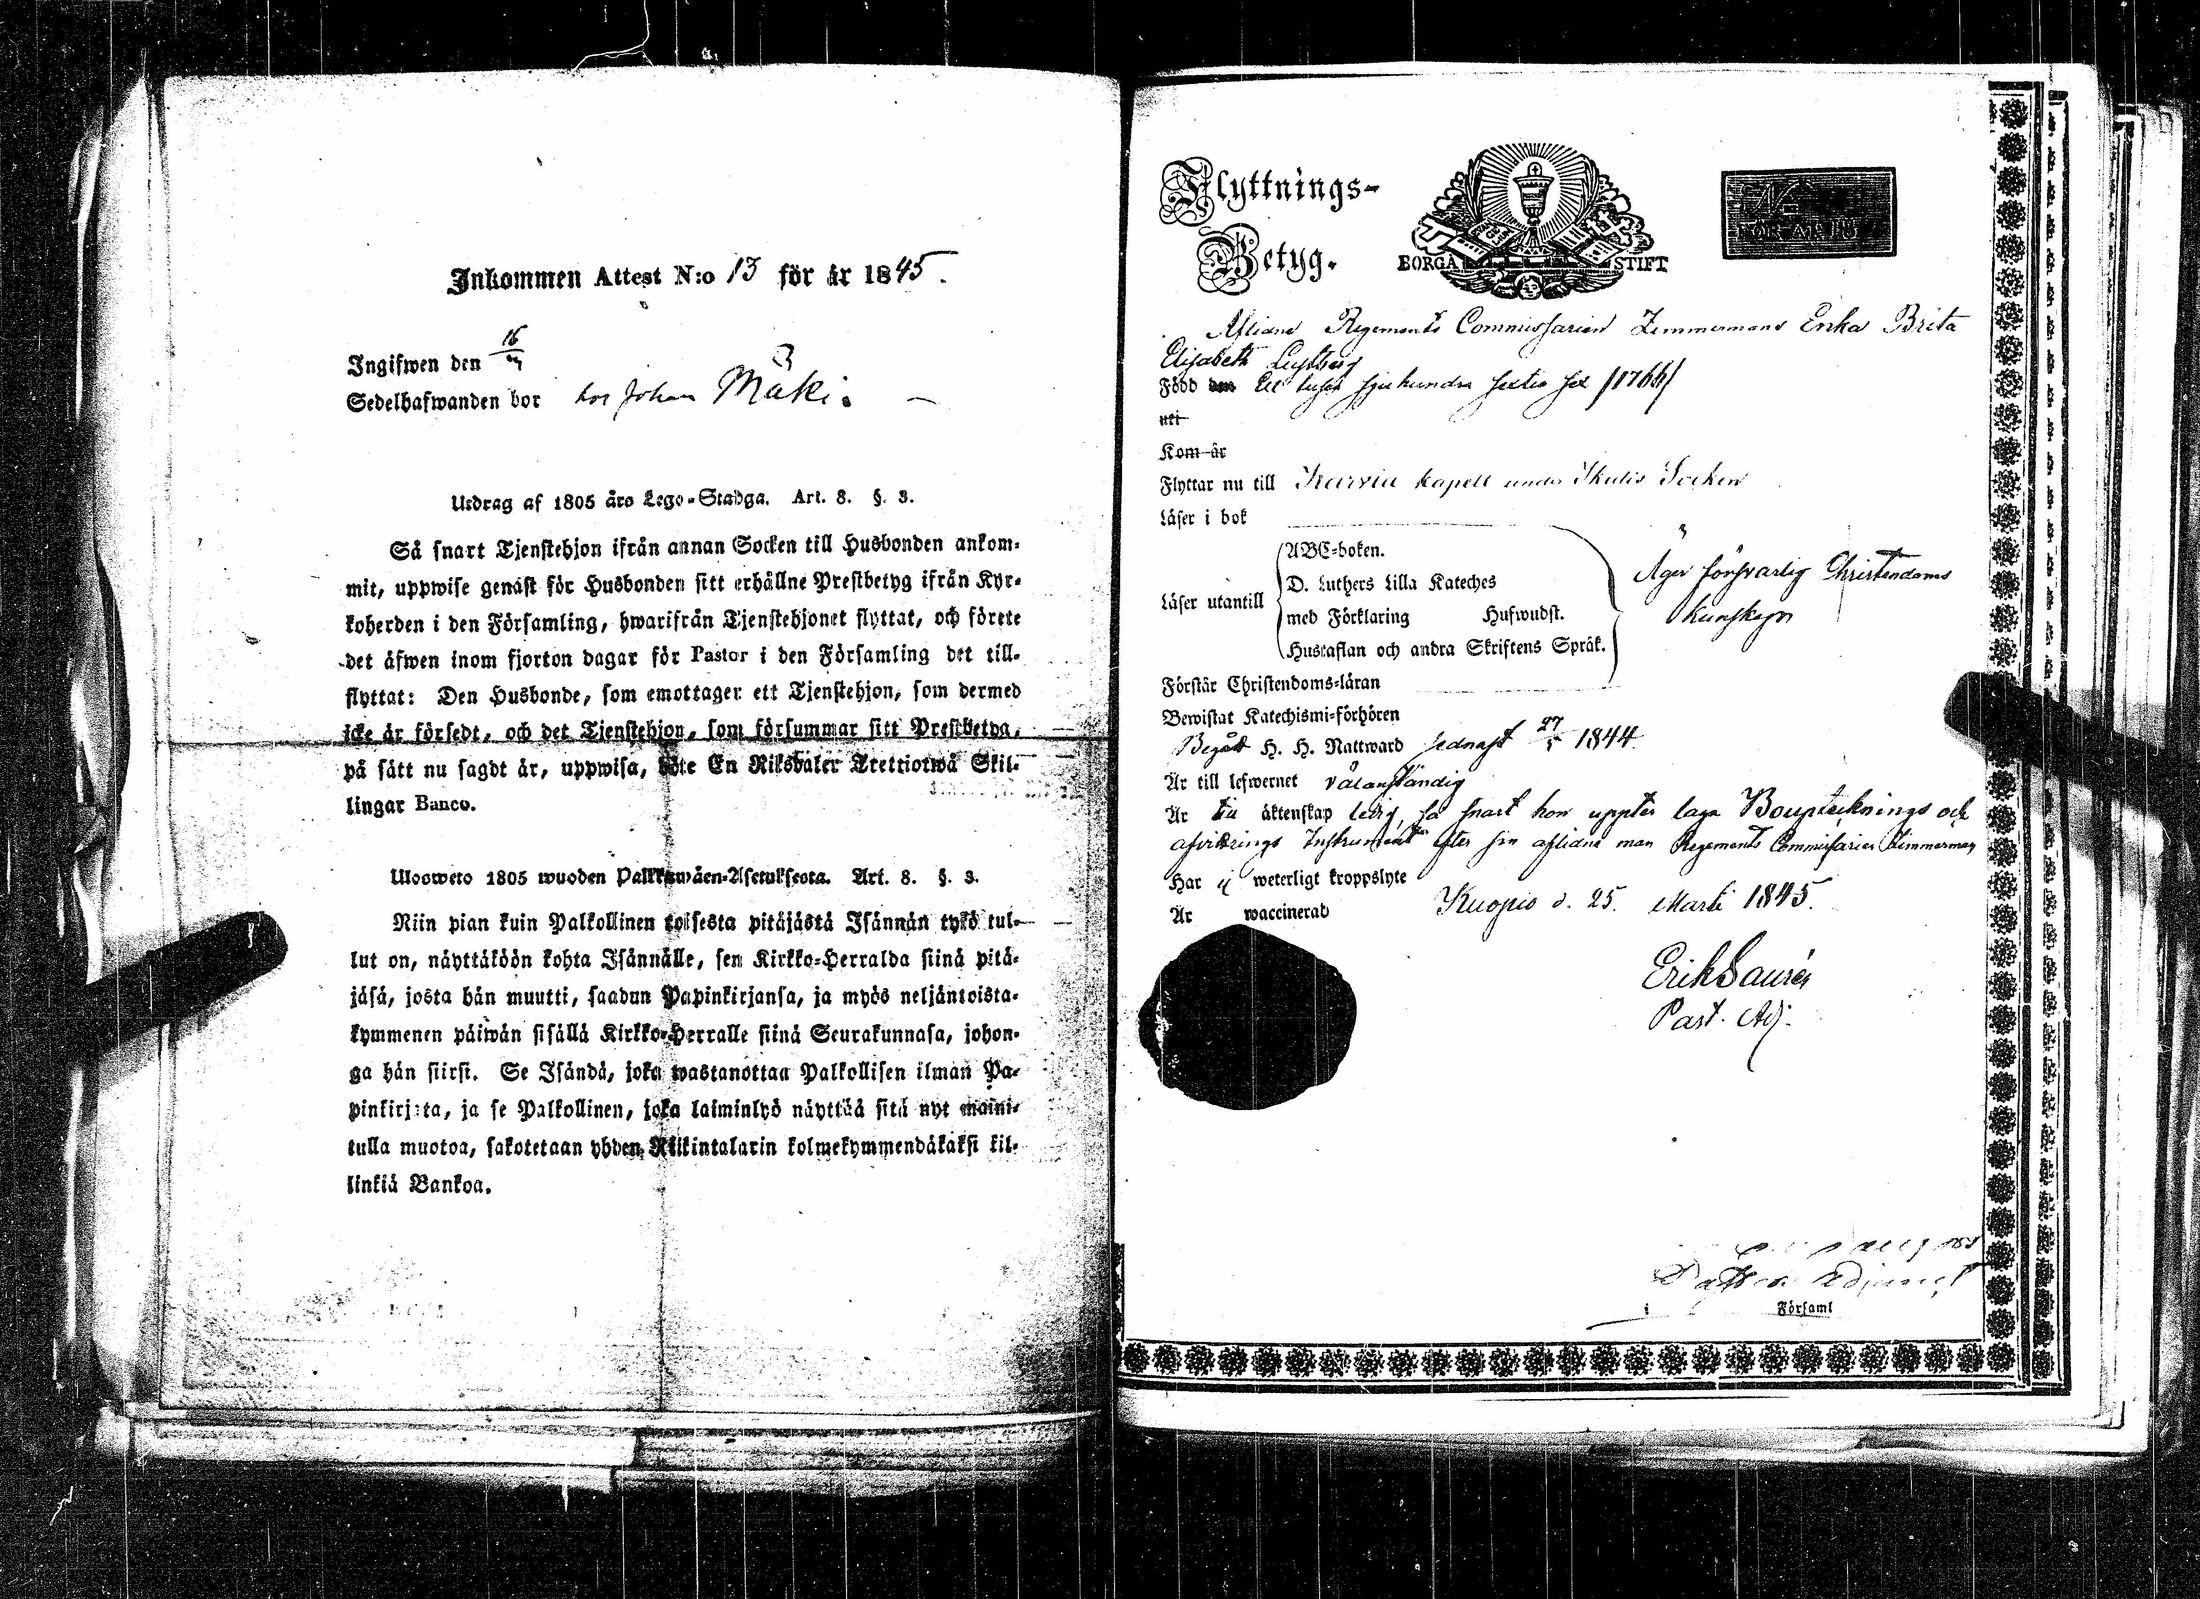 Inkommen Attest N:o 13 för år 1845.
Ingifwen den 16/4
Sedelhafwanden bor hos Johan Mäki.
Utdrag af 1805 års Lego-Stadga. Art. 8. §. 3.
Så snart Tjenstehjon ifrån annan Socken till Husbonden ankom-
mit, uppwise genast för Husbonden sitt erhållne Prestbetyg ifrån Kyr-
koherden i den Församling, hwarifrån Tjenstehjonet flyttat, och förete
det äfwen inom fjorton dagar för Pastor i den Församling det till-
flyttat: Den Husbonde, som emottager ett Tjenstehjon, som dermed
icke är försedt, och det Tjenstehjon, som försummar sitt Prestbetyg,
på sätt nu sagdt är, uppwisa, böte En Riksdaler Trettiotwå Skil-
lingar Banco.
Ulosweto 1805 wuoden Palkkawäen-Asetuksesta. Art. 8. §. 3.
Niin pian kuin Palkollinen toisesta pitäjästä Isännän tykö tul-
lut on, näyttäköön kohta Isännälle, sen Kirkko-Herralda siinä pitä-
jäsä, josta hän muutti, saadun Papinkirjansa, ja myös neljäntoista-
kymmenen päiwän sisällä Kirkko-Herralle siinä Seurakunnasa, johon-
ga hän siirsi. Se Isändä, joka wastanottaa Palkollisen ilman Pa-
pinkirjata, ja se Palkollinen, joka laiminlyö näyttää sitä nyt maini-
tulla muotoa, sakotetaan yhden Riikintalarin kolmekymmendäkaksi kil-
linkiä Bankoa.
Flyttnings-
Betyg.
BORGÅ STIFT
FÖR ÅR 18
Aflidne Regements Commissarien Zimmermans Enka Brita
Elisabeth
Född den Ett tusen sjuhundra sextio sex /1766/
uti
Kom år
Flyttar nu till Karvia kapell under Ikalis Socken
Läser i bok
Läser utantill
ABC-boken.
D. Luthers Lilla Kateches
med Förklaring Hufwudst.
Hustaflan och andra Skriftens Språk.
Äger försvarlig Christendoms
kunskap
Förstår Christendoms-läran
Bewistat Katechismi-förhören
Begått H. H. Nattward sednast 27/5 1844
Är till lefwernet välanständig
Är till äktenskap ledig, så snart hon uppter laga Bouptecknings och
afvittrings Instrument efter sin aflidne man Regements Commissarien Zimmerman
Har ej weterligt kroppslyte
Är waccinerad
Kuopio d. 25. Martii 1845.
Erik Laurén
Past. Adj.
i Församl